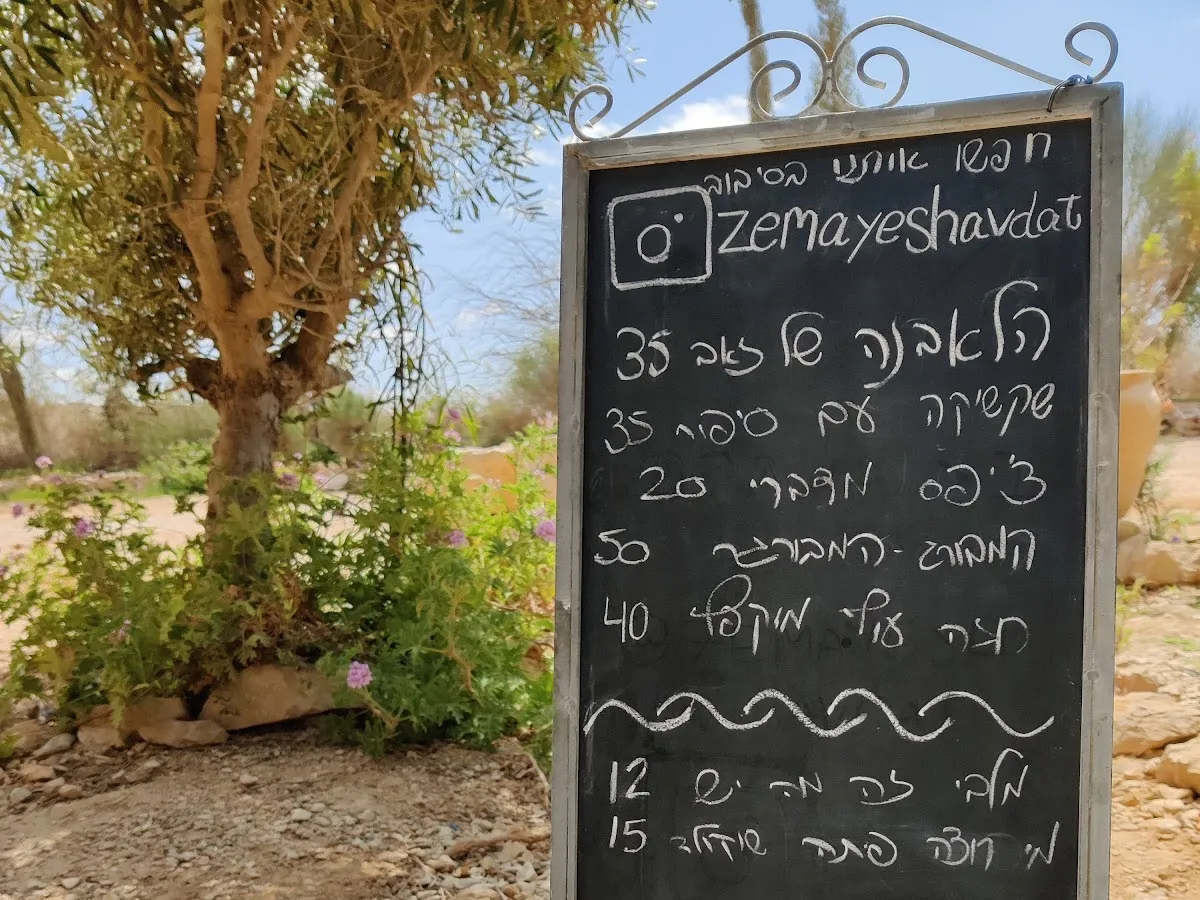 חפשו אותנו בסיבוב
zemayeshavdat
הלאבנה של זאב 35
שקשיקה עם סיפור 35
צ'יפס מדברי 20
המבורג-המבורגר 50
חזה עוף מוקפץ 40
מלבי זה מה יש 12
מי רוצה פיתה שידליק 15